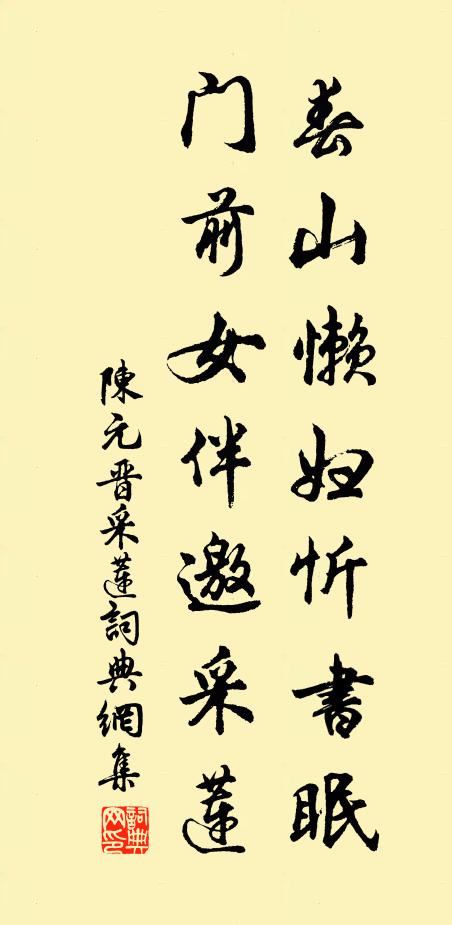 春山懒妇忻書眠
门前女伴邀采蓮
陳元晋采蓮詞典網集
詞典網印